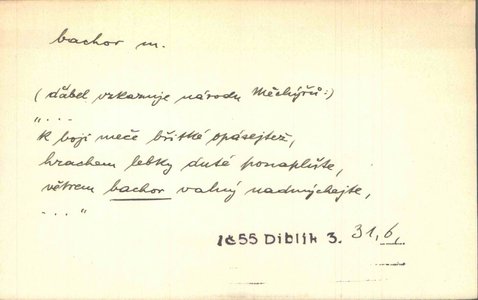 bachor m.
(ďábel vzkazuje národu Měchýřů:)
„...
k boji meče břitké opásejtež,
hrachem lebky duté ponaplňte,
větrem bachor valný nadmýchejte,
... “
1855 Diblík 3. 31, 6,